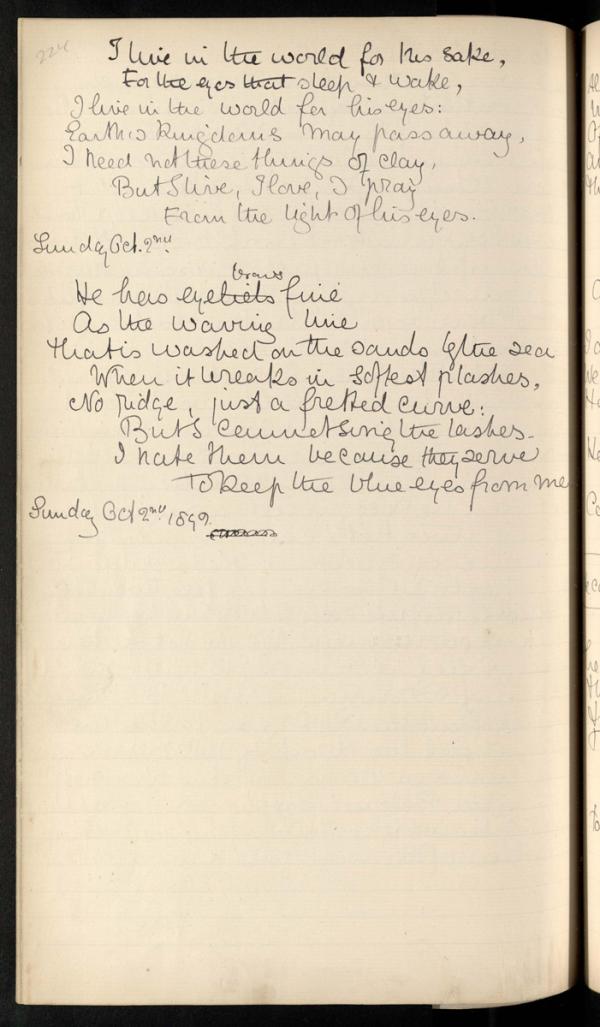 224
I live in the world for his sake,
For the eyes that sleep & wake,
I live in the world for his eyes:
Earth's kingdoms may pass away,
I need not these things of clay,
But I live, I love, I pray
From the light of his eyes.
Sunday Oct. 2nd
brows
He has eyelids fine
As the waving line
That is washed on the sands by the sea
When it breaks in softest plashes,
No ridge, just a fretted curve:
But I cannot sing the lashes -
I hate them because they serve
To keep the blue eyes from me
Sunday Oct 2nd 1892